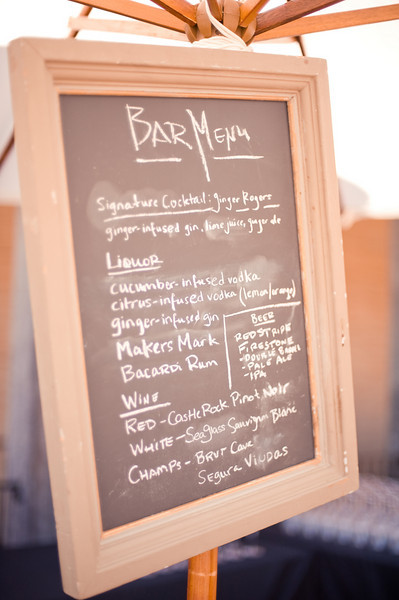 BAR MENU
Signature Cocktail: Ginger Rogers
ginger-infused gin, lime juice, ginger ale
LIQUOR
cucumber-infused vodka
citrus-infused vodka (lemon/orange)
ginger-infused gin
MAKERS MARK
BACARDI RUM
BEER
REDSTRIPE
FIRESTONE
-DOUBLE BARREL
-PALE ALE
-IPA
WINE
RED - CASTLE ROCK PINOT NOIR
WHITE - SeaGlass Sauvignon Blanc
CHAMPS - BRUT CAVE
SEGURA VIUDAS